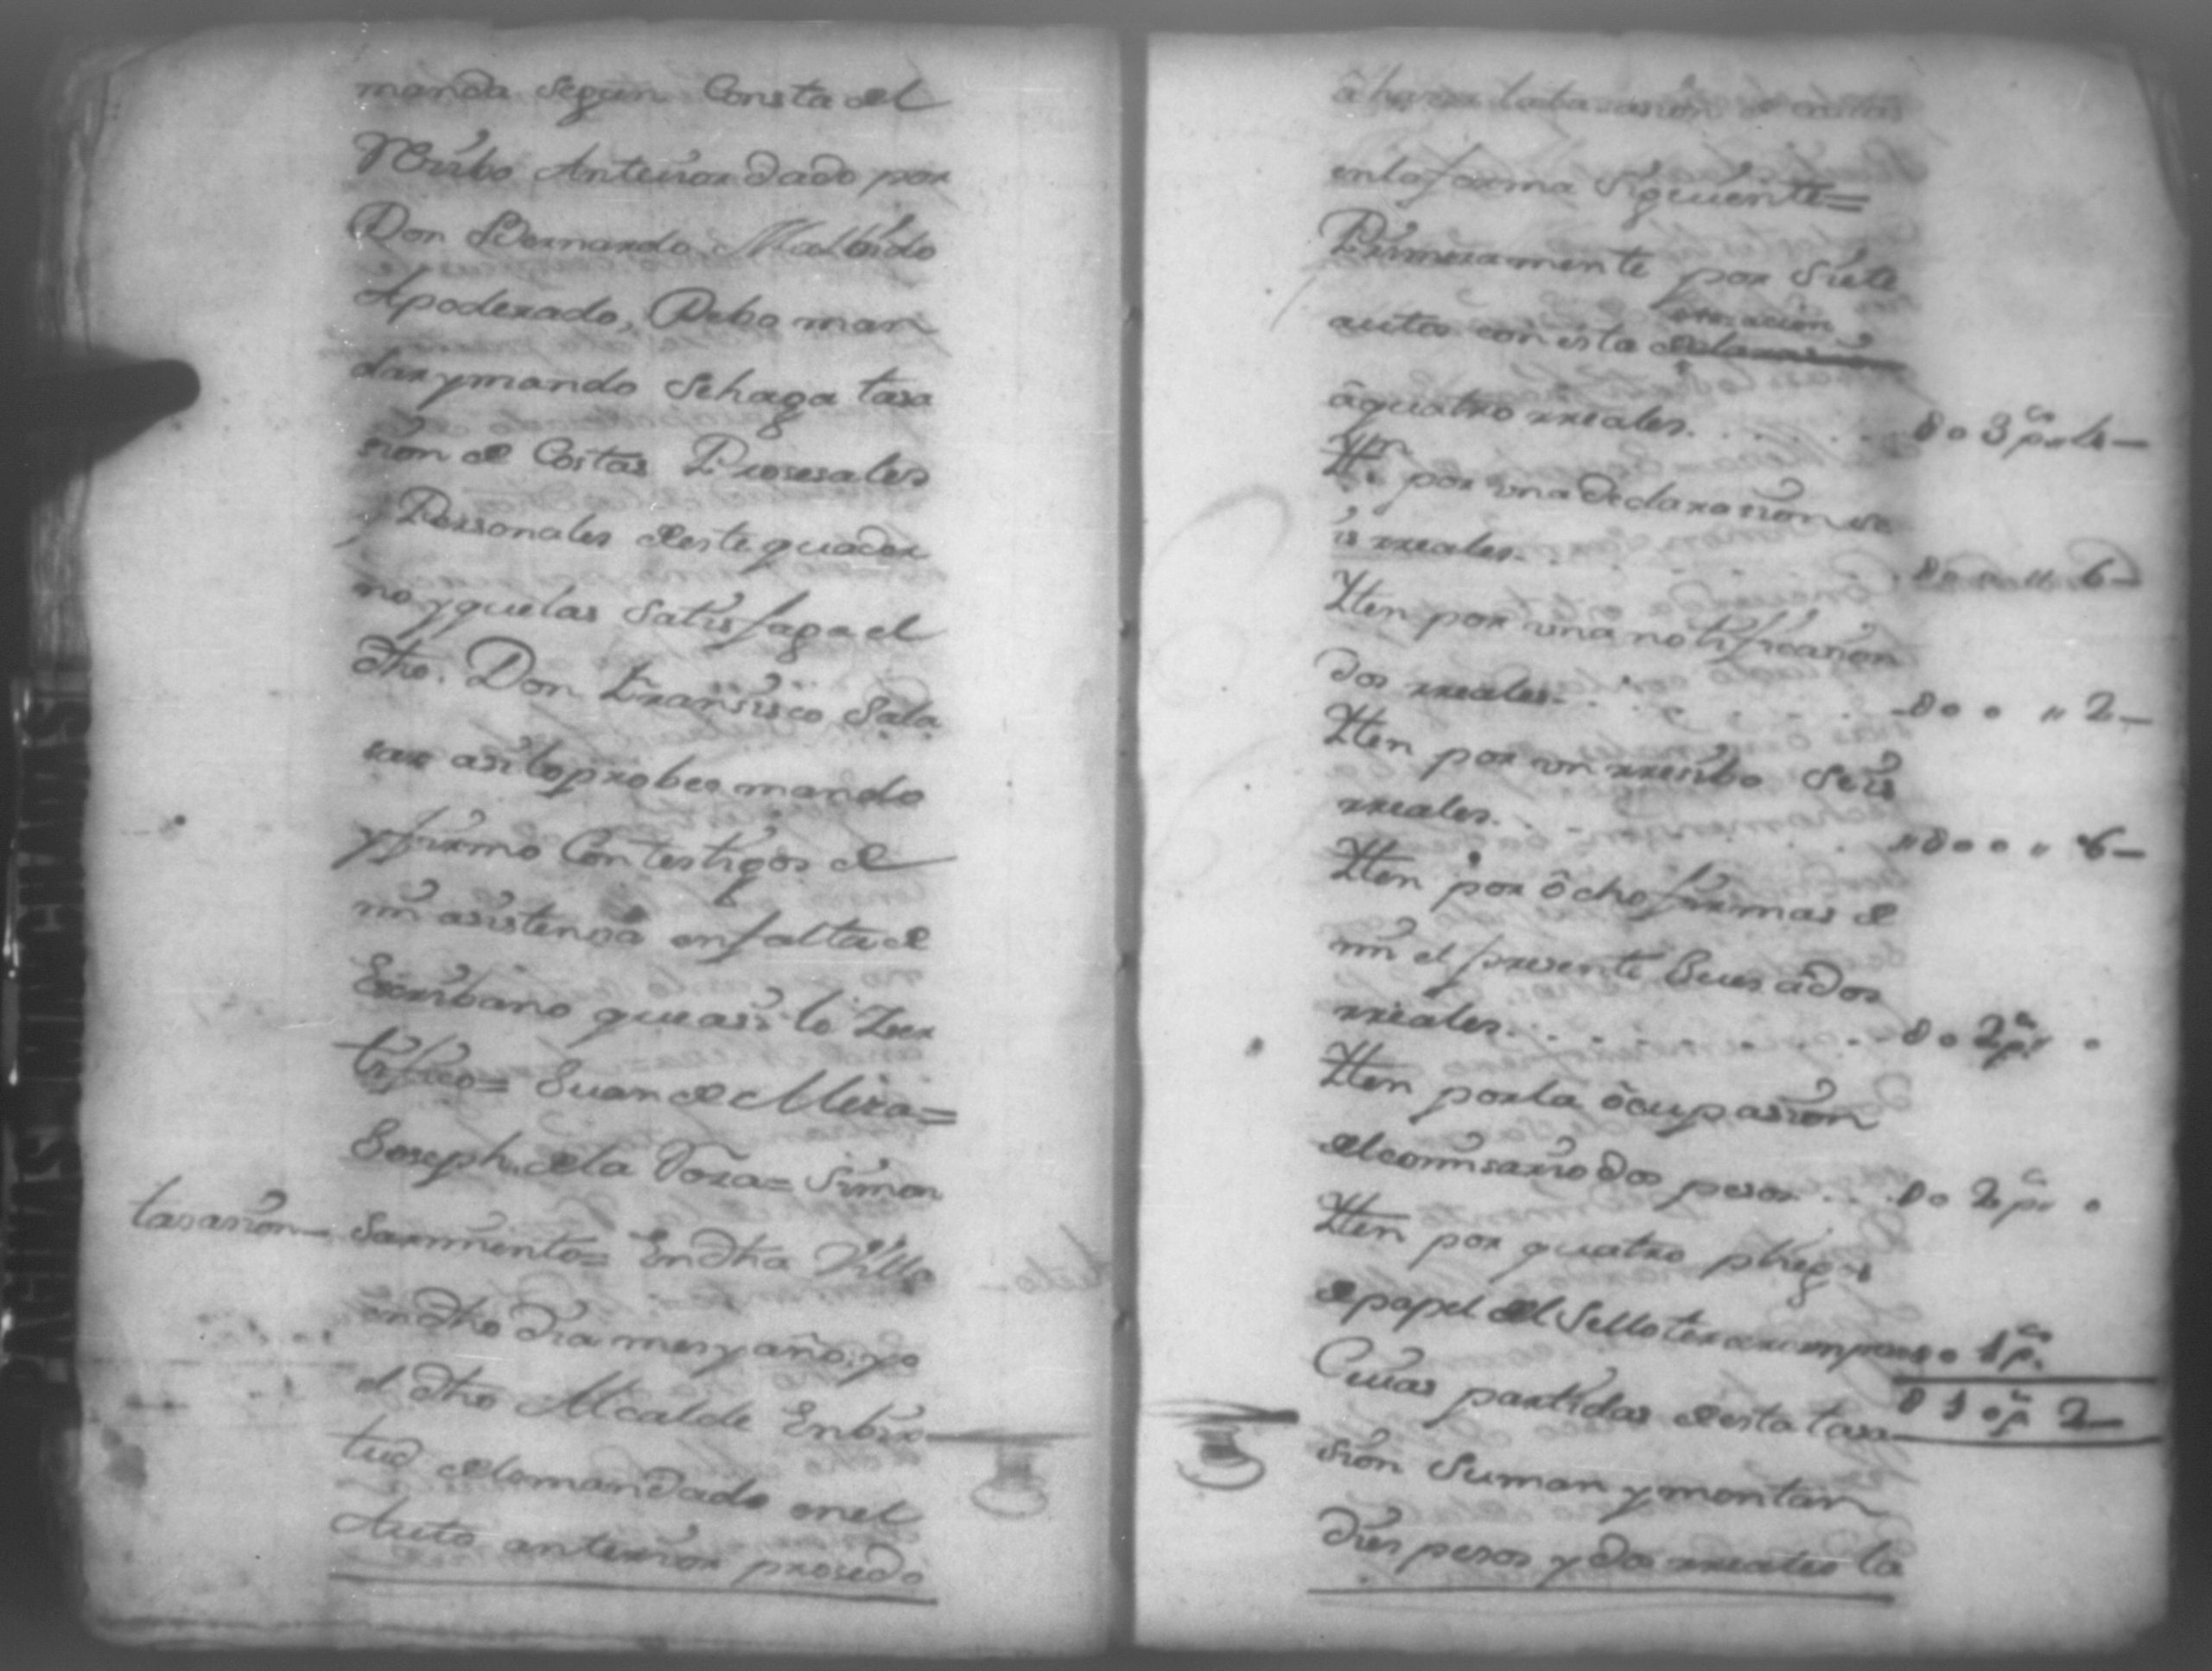 manda segun Consta del
Resibo Anterior dado por
Don Bernardo Malbido
Apoderado, Debo man
dar y mando Sehaga tasa
sion de Costas Prosesales
y Personales deeste quader
no yquelas Satisfaga el
dho. Don Fransisco Sala
sar asilo probeo mando
y firmo Con testigos de
mi asistensia enfalta de
Escribano queasi lo Zer
tifico= Juan de Mera=
Joseph. dela Tora= Simon
tasasion Sarmiento= En dha Villa
en dho dia mes y año, yo
el dho Alcalde En bir
tud delomandado en el
Auto anterior prosedo
â haser la tasasion de costas
enla forma Siguiente=
Primeramente por Siete
autos con esta
â quatro rreales. 3 ps 4
Yttn por una declarasion se
is rreales. 6
Yten por una notificasion
dos rreales. 2
Yten por un rresibo Seis
rreales. 6
Yten por ôcho firmas de
mi el presente Jues â dos
rreales. 2 ps
Yten por la ôcupasion
del comisario dos pesos 2 ps
Yten por quatro plieg s
de papel del Sello tersero un peso 1 ps
Cuias partidas de esta tasa 10 ps 2
sion Suman y montan
dies pesos y dos rreales la